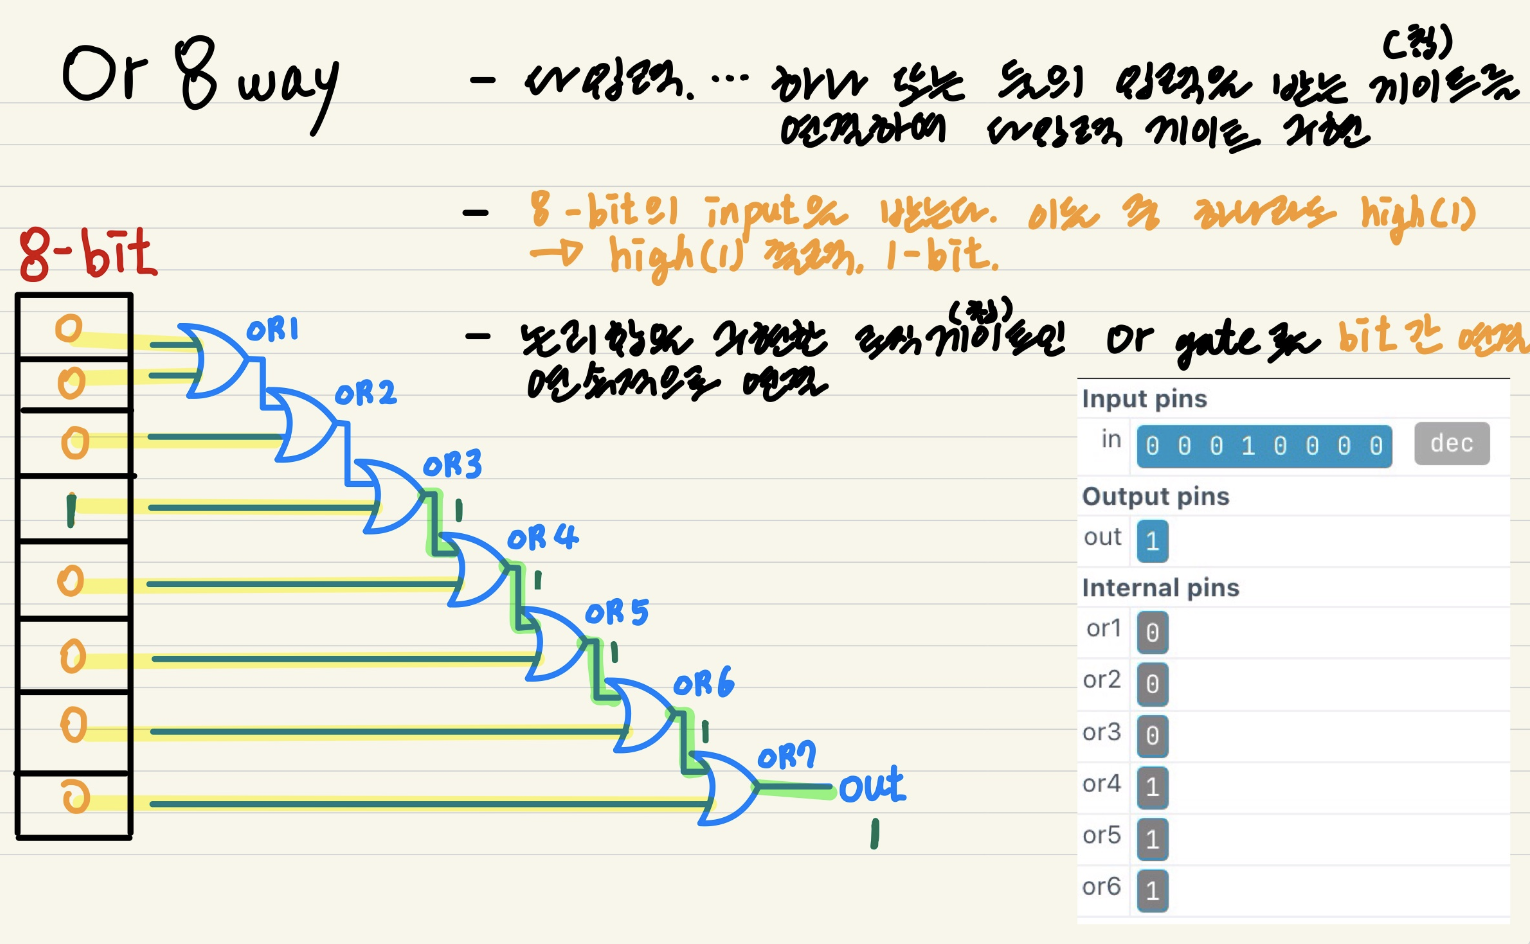 Or 8 way
- 다입력. ... 하나 또는 둘의 입력을 받는 게이트를
(칩)
연결하여 다입력 게이트 구현
- 8-bit의 input을 받는다. 이들 중 하나라도 high(1)
→ high(1) 출력. 1-bit.
- 논리합을 구현한 로직게이트인 Or gate로 bit간 연결
(칩)
연쇄적으로 연결
8-bit
0
0
0
1
0
0
0
0
OR1
OR2
OR3
1
OR4
1
OR5
1
OR6
1
OR7
out
1
Input pins
in 0 0 0 1 0 0 0 0 dec
Output pins
out 1
Internal pins
or1 0
or2 0
or3 0
or4 1
or5 1
or6 1